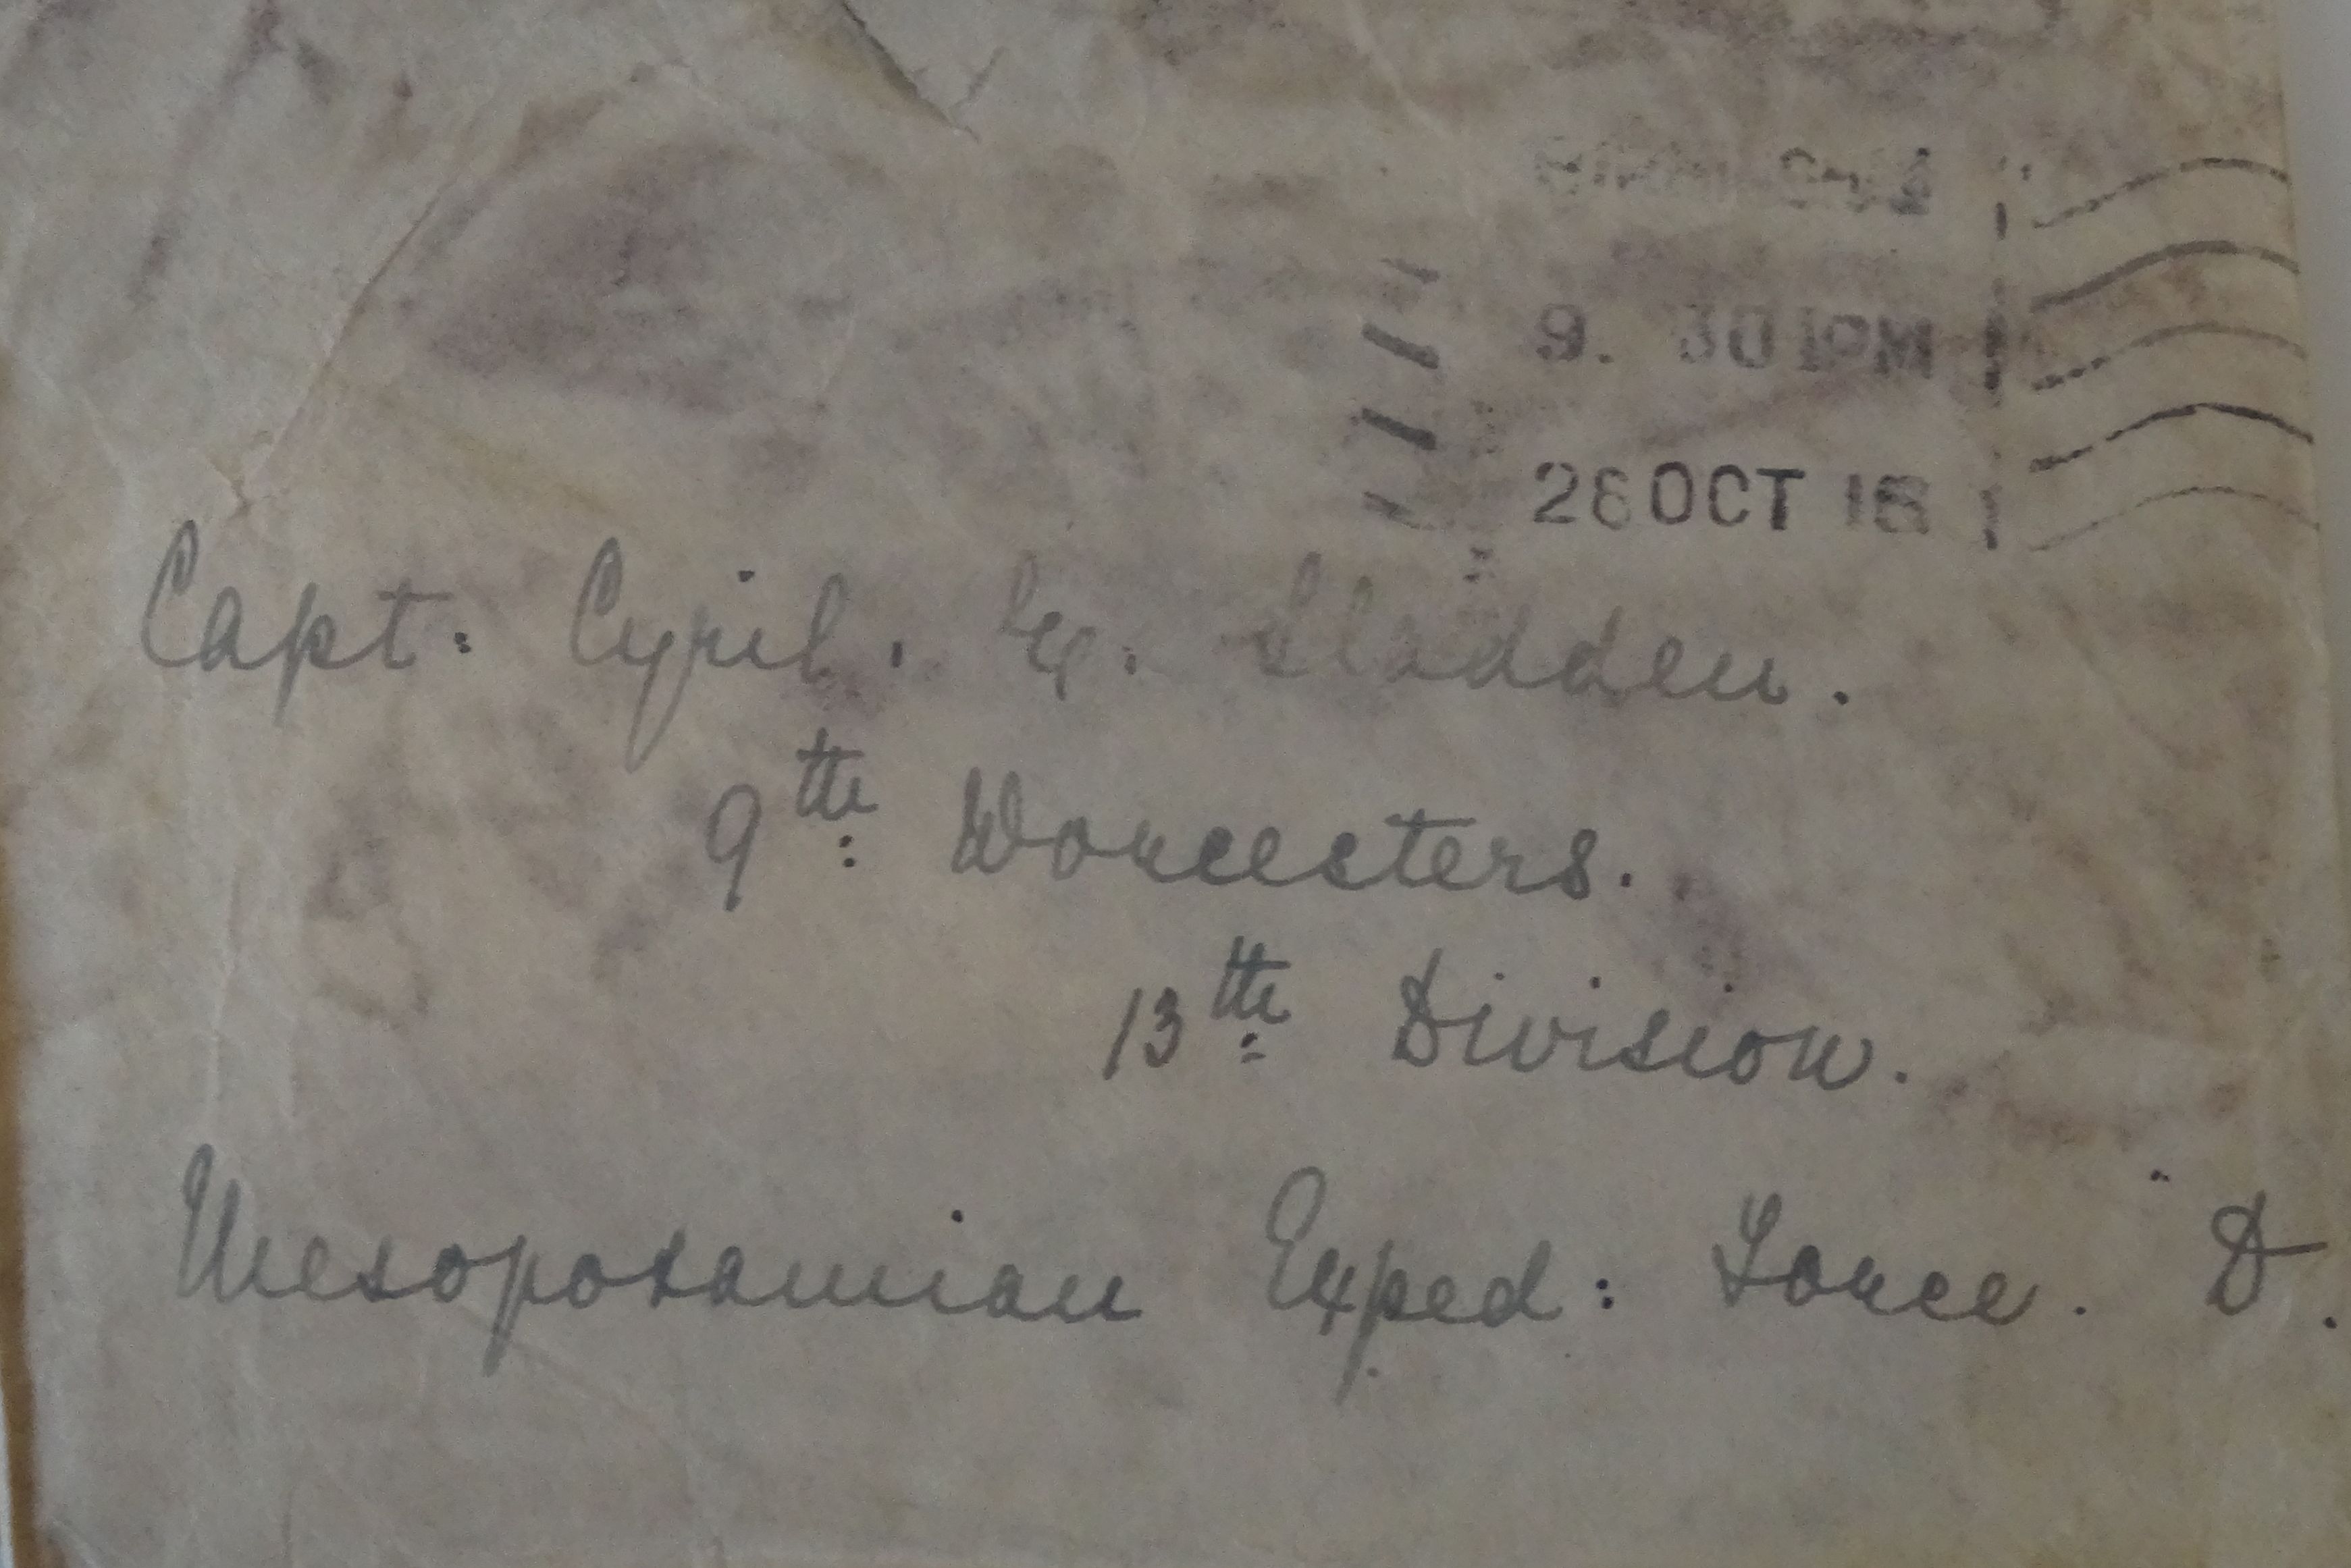 9. 30 PM
26 OCT 16
Capt. Cyril. E. Sladden.
9th: Worcesters.
13th: Division.
Mesopotamian Exped: Force. D.